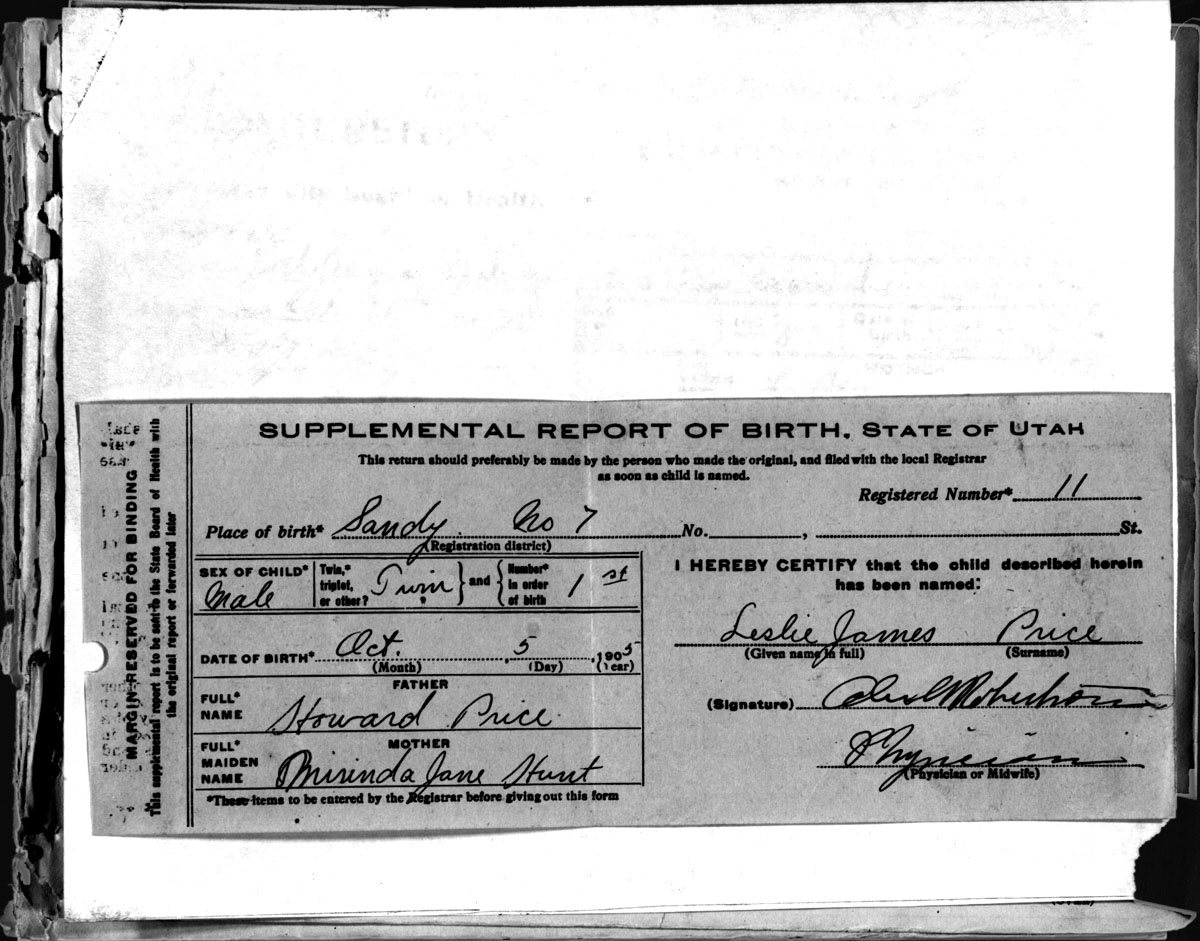 SUPPLEMENTAL REPORT OF BIRTH, STATE OF UTAH
This return should preferably be made by the person who made the original, and filed with the local Registrar
as soon as child is named.
Registered Number* 11
Place of birth* Sandy. No 7 No. , St.
(Registration district)
SEX OF CHILD* Male
Twin,* triplet, or other? Twin } and { Number* in order of birth 1st
DATE OF BIRTH* Oct. 5, 1905
(Month) (Day) (Year)
FATHER
FULL* NAME Howard Price.
MOTHER
FULL* MAIDEN NAME Mirinda Jane Hunt
*These items to be entered by the Registrar before giving out this form
I HEREBY CERTIFY that the child described herein
has been named:
Leslie James Price
(Given name in full) (Surname)
(Signature) Robertson
Physician
(Physician or Midwife)
MARGIN RESERVED FOR BINDING
This supplemental report is to be sent to the State Board of Health with
the original report or forwarded later